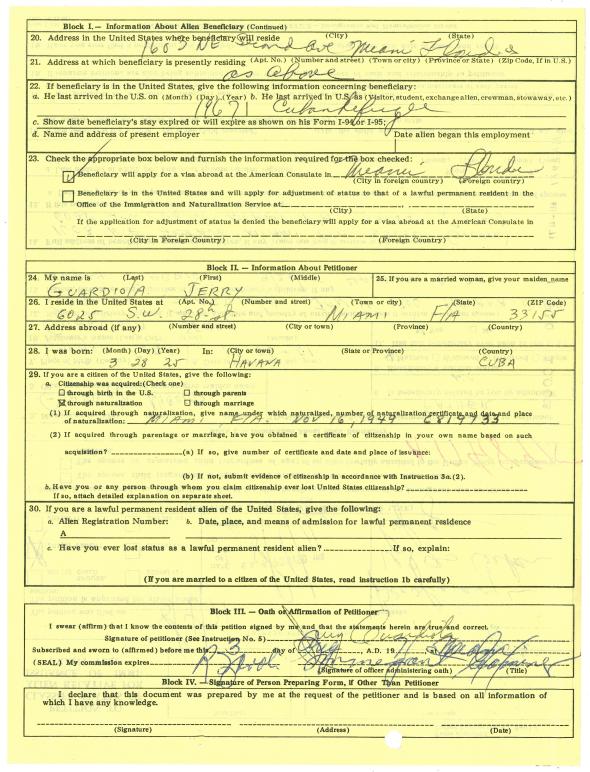 Block I. — Information About Alien Beneficiary (Continued)
20. Address in the United States where beneficiary will reside (City) (State)
1603 NE Second Ave Miami Florida
21. Address at which beneficiary is presently residing (Apt. No.) (Number and street) (Town or city) (Province or State) (Zip Code, if in U.S.)
as above
22. If beneficiary is in the United States, give following information concerning beneficiary:
a. He last arrived in the U.S. on (Month) (Day) (Year) b. He last arrived in U.S. as (Visitor, student, exchange alien, crewman, stowaway, etc.)
Cuban Refugee
c. Show date beneficiary's stay expired or will expire as shown on his Form I-94 or I-95:
d. Name and address of present employer Date alien began this employment
23. Check the appropriate box below and furnish the information required for the box checked:
Beneficiary will apply for a visa abroad at the American Consulate in Miami Florida
(City in foreign country) (Foreign country)
Beneficiary is in the United States and will apply for adjustment of status to that of a lawful permanent resident in the
Office of the Immigration and Naturalization Service at
(City) (State)
If the application for adjustment of status is denied the beneficiary will apply for a visa abroad at the American Consulate in
(City in Foreign Country) (Foreign Country)
Block II. — Information About Petitioner
24. My name is (Last) (First) (Middle) 25. If you are a married woman, give your maiden name
GUARDIOlA JERRY
26. I reside in the United States at (Apt. No.) (Number and street) (Town or city) (State) (ZIP Code)
6025 S.W. 28th st MIAMI FlA 33155
27. Address abroad (if any) (Number and street) (City or town) (Province) (Country)
28. I was born: (Month) (Day) (Year) In: (City or town) (State or Province) (Country)
3 28 25 HAVANA CUBA
29. If you are a citizen of the United States, give the following:
a. Citizenship was acquired: (Check one)
through birth in the U.S. through parents
through naturalization through marriage
(1) If acquired through naturalization, give name under which naturalized, number of naturalization certificate and date and place
of naturalization: MIAMI FlA. Nov 16, 1949 6819733
(2) If acquired through parentage or marriage, have you obtained a certificate of citizenship in your own name based on such
acquisition? (a) If so, give number of certificate and date and place of issuance:
(b) If not, submit evidence of citizenship in accordance with Instruction 3a.(2).
b. Have you or any person through whom you claim citizenship ever lost United States citizenship?
If so, attach detailed explanation on separate sheet.
30. If you are a lawful permanent resident alien of the United States, give the following:
a. Alien Registration Number: b. Date, place, and means of admission for lawful permanent residence
A
c. Have you ever lost status as a lawful permanent resident alien? If so, explain:
(If you are married to a citizen of the United States, read instruction 1b carefully)
Block III. — Oath or Affirmation of Petitioner
I swear (affirm) that I know the contents of this petition signed by me and that the statements herein are true and correct.
Signature of petitioner (See Instruction No. 5) Jerry Guardiola
Subscribed and sworn to (affirmed) before me this 3 day of , A.D. 19
(SEAL) My commission expires
(Signature of officer administering oath) (Title)
Block IV. — Signature of Person Preparing Form, if Other Than Petitioner
I declare that this document was prepared by me at the request of the petitioner and is based on all information of
which I have any knowledge.
(Signature) (Address) (Date)